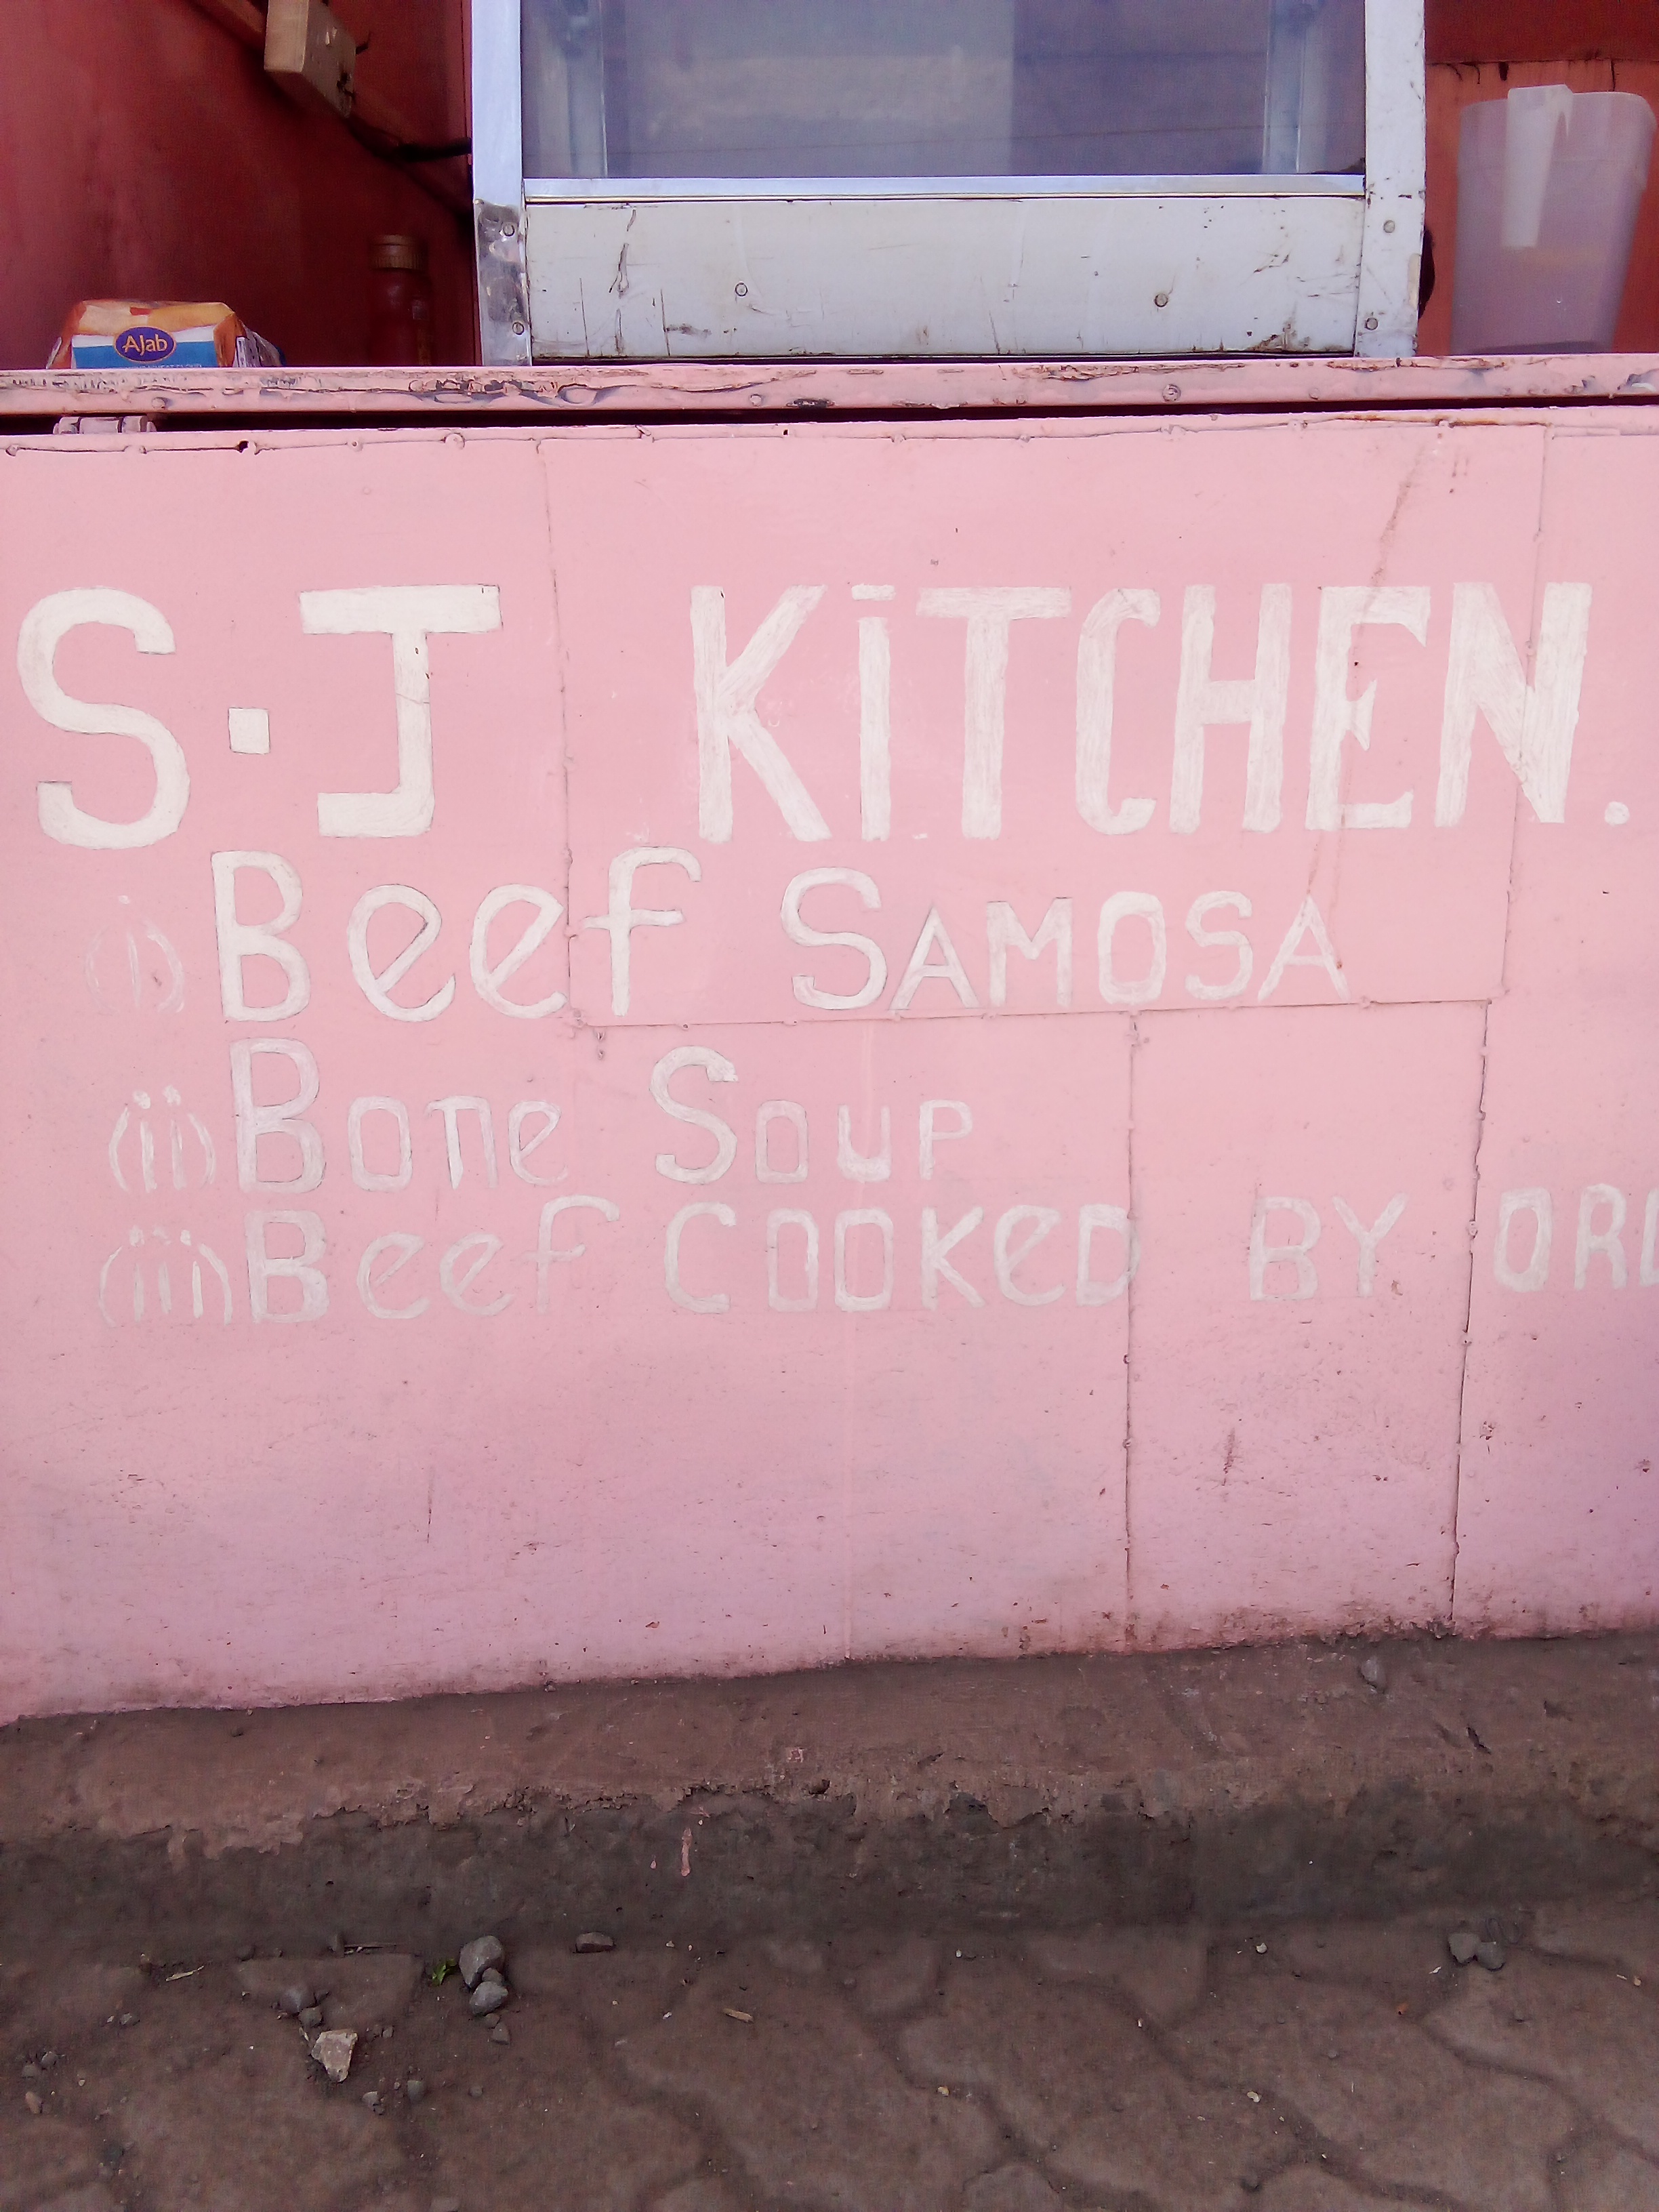 Ajab
S.J KiTCHEN.
(i) Beef SAMOSA
(ii) Bone Soup
(iii) Beef COOKeD BY ORD